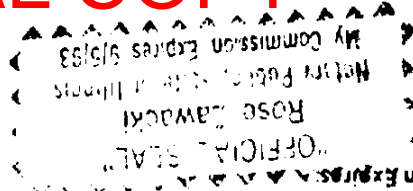 AL COPY
"OFFICIAL SEAL"
Rose Zawacki
Notary Public, State of Illinois
My Commission Expires 9/5/93
Expires